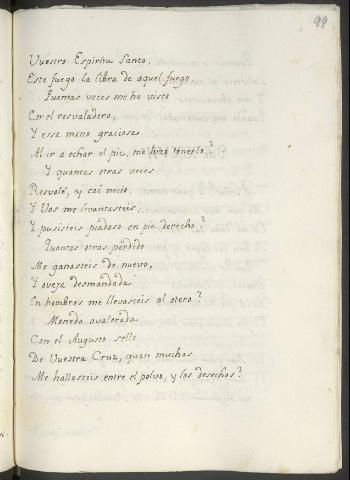 99
Vuestro Espiritu Santo,
Este fuego la libra de aquel fuego.
Quantas veces me he visto
En el resvaladero,
Y essa mano graciosa
Al ir a echar el pie, me hizo tenerlo?
Y quantas otras veces
Resvalé, y caí necio
Y Vos me levantasteis,
Y pusisteis piadoso en pie derecho?
Quantas otras perdido
Me ganasteis de nuevo,
Y oveja desmandada
En hombros me llevasteis al otero?
Moneda avalorada
Con el Augusto sello
De Vuestra Cruz, quan muchas
Me hallasteis entre el polvo, y los desechos?